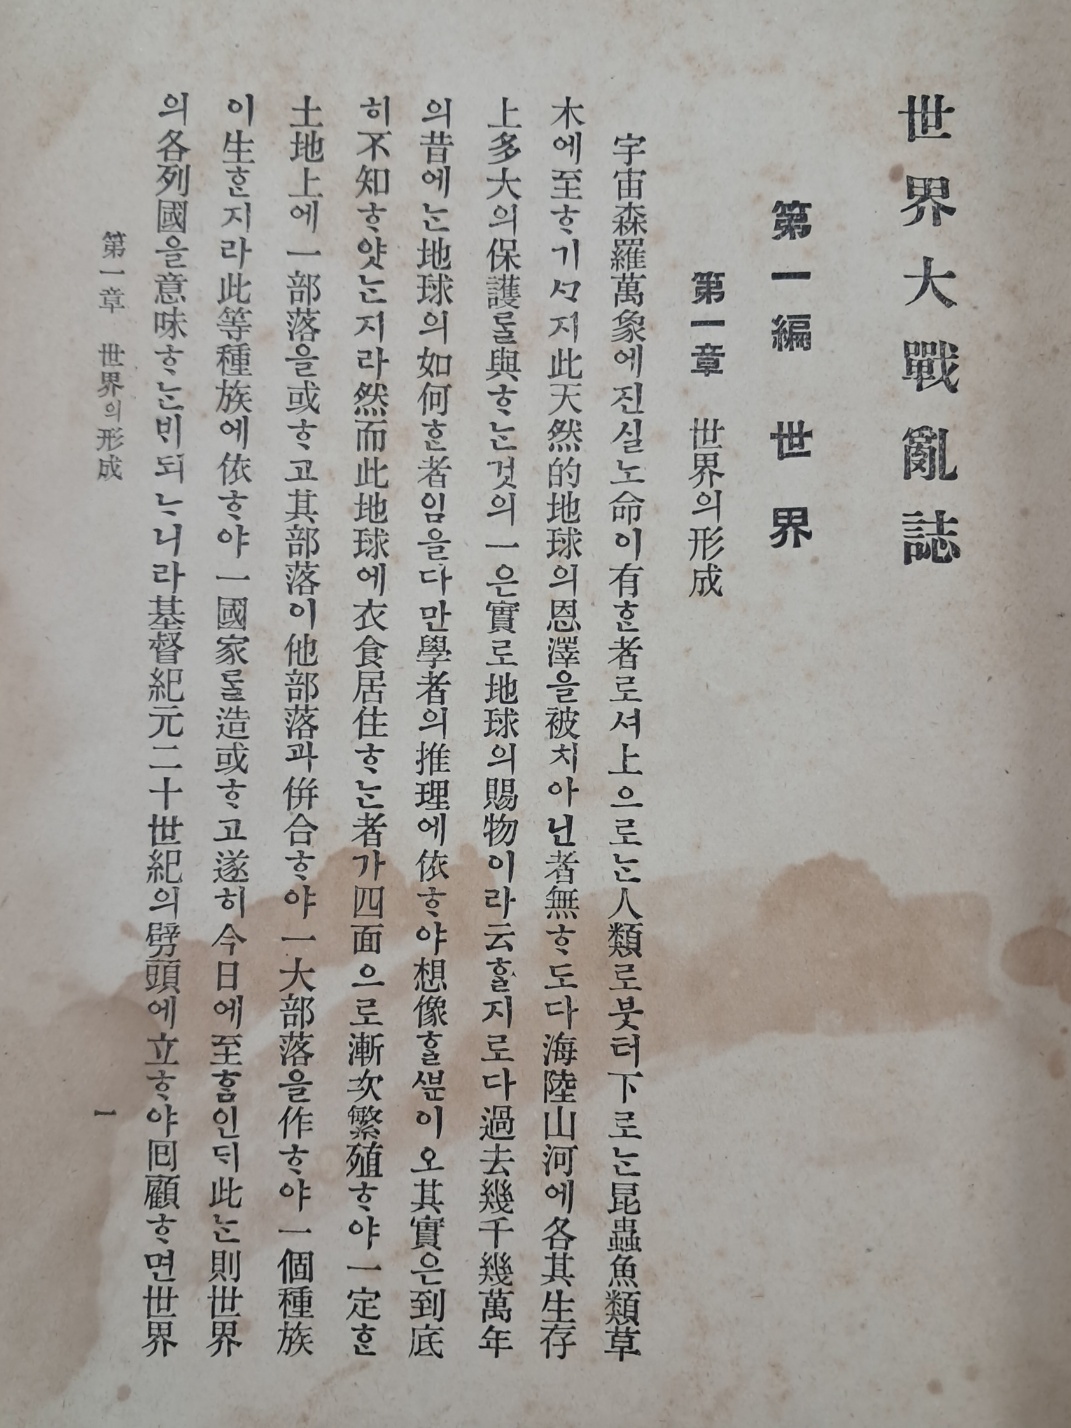 世界大戰亂誌
第一編 世界
第一章 世界의形成
宇宙森羅萬象에진실노命이有ᄒᆞᆫ者로셔上으로ᄂᆞᆫ人類로붓터下로ᄂᆞᆫ昆蟲魚類草
木에至ᄒᆞ기ᄭᆞ지此天然的地球의恩澤을被치아닌者無ᄒᆞ도다海陸山河에各其生存
上多大의保護ᄅᆞᆯ與ᄒᆞᄂᆞᆫ것의一은實로地球의賜物이라云ᄒᆞᆯ지로다過去幾千幾萬年
의昔에ᄂᆞᆫ地球의如何ᄒᆞᆫ者임을다만學者의推理에依ᄒᆞ야想像ᄒᆞᆯᄲᅮᆫ이오其實은到底
히不知ᄒᆞ얏ᄂᆞᆫ지라然而此地球에衣食居住ᄒᆞᄂᆞᆫ者가四面으로漸次繁殖ᄒᆞ야一定ᄒᆞᆫ
土地上에一部落을或ᄒᆞ고其部落이他部落과倂合ᄒᆞ야一大部落을作ᄒᆞ야一個種族
이生ᄒᆞᆫ지라此等種族에依ᄒᆞ야一國家ᄅᆞᆯ造或ᄒᆞ고遂히今日에至ᄒᆞᆷ인ᄃᆡ此ᄂᆞᆫ則世界
의各列國을意味ᄒᆞᄂᆞᆫᄇᆡ되ᄂᆞ니라基督紀元二十世紀의劈頭에立ᄒᆞ야回顧ᄒᆞ면世界
第一章 世界의形成
一